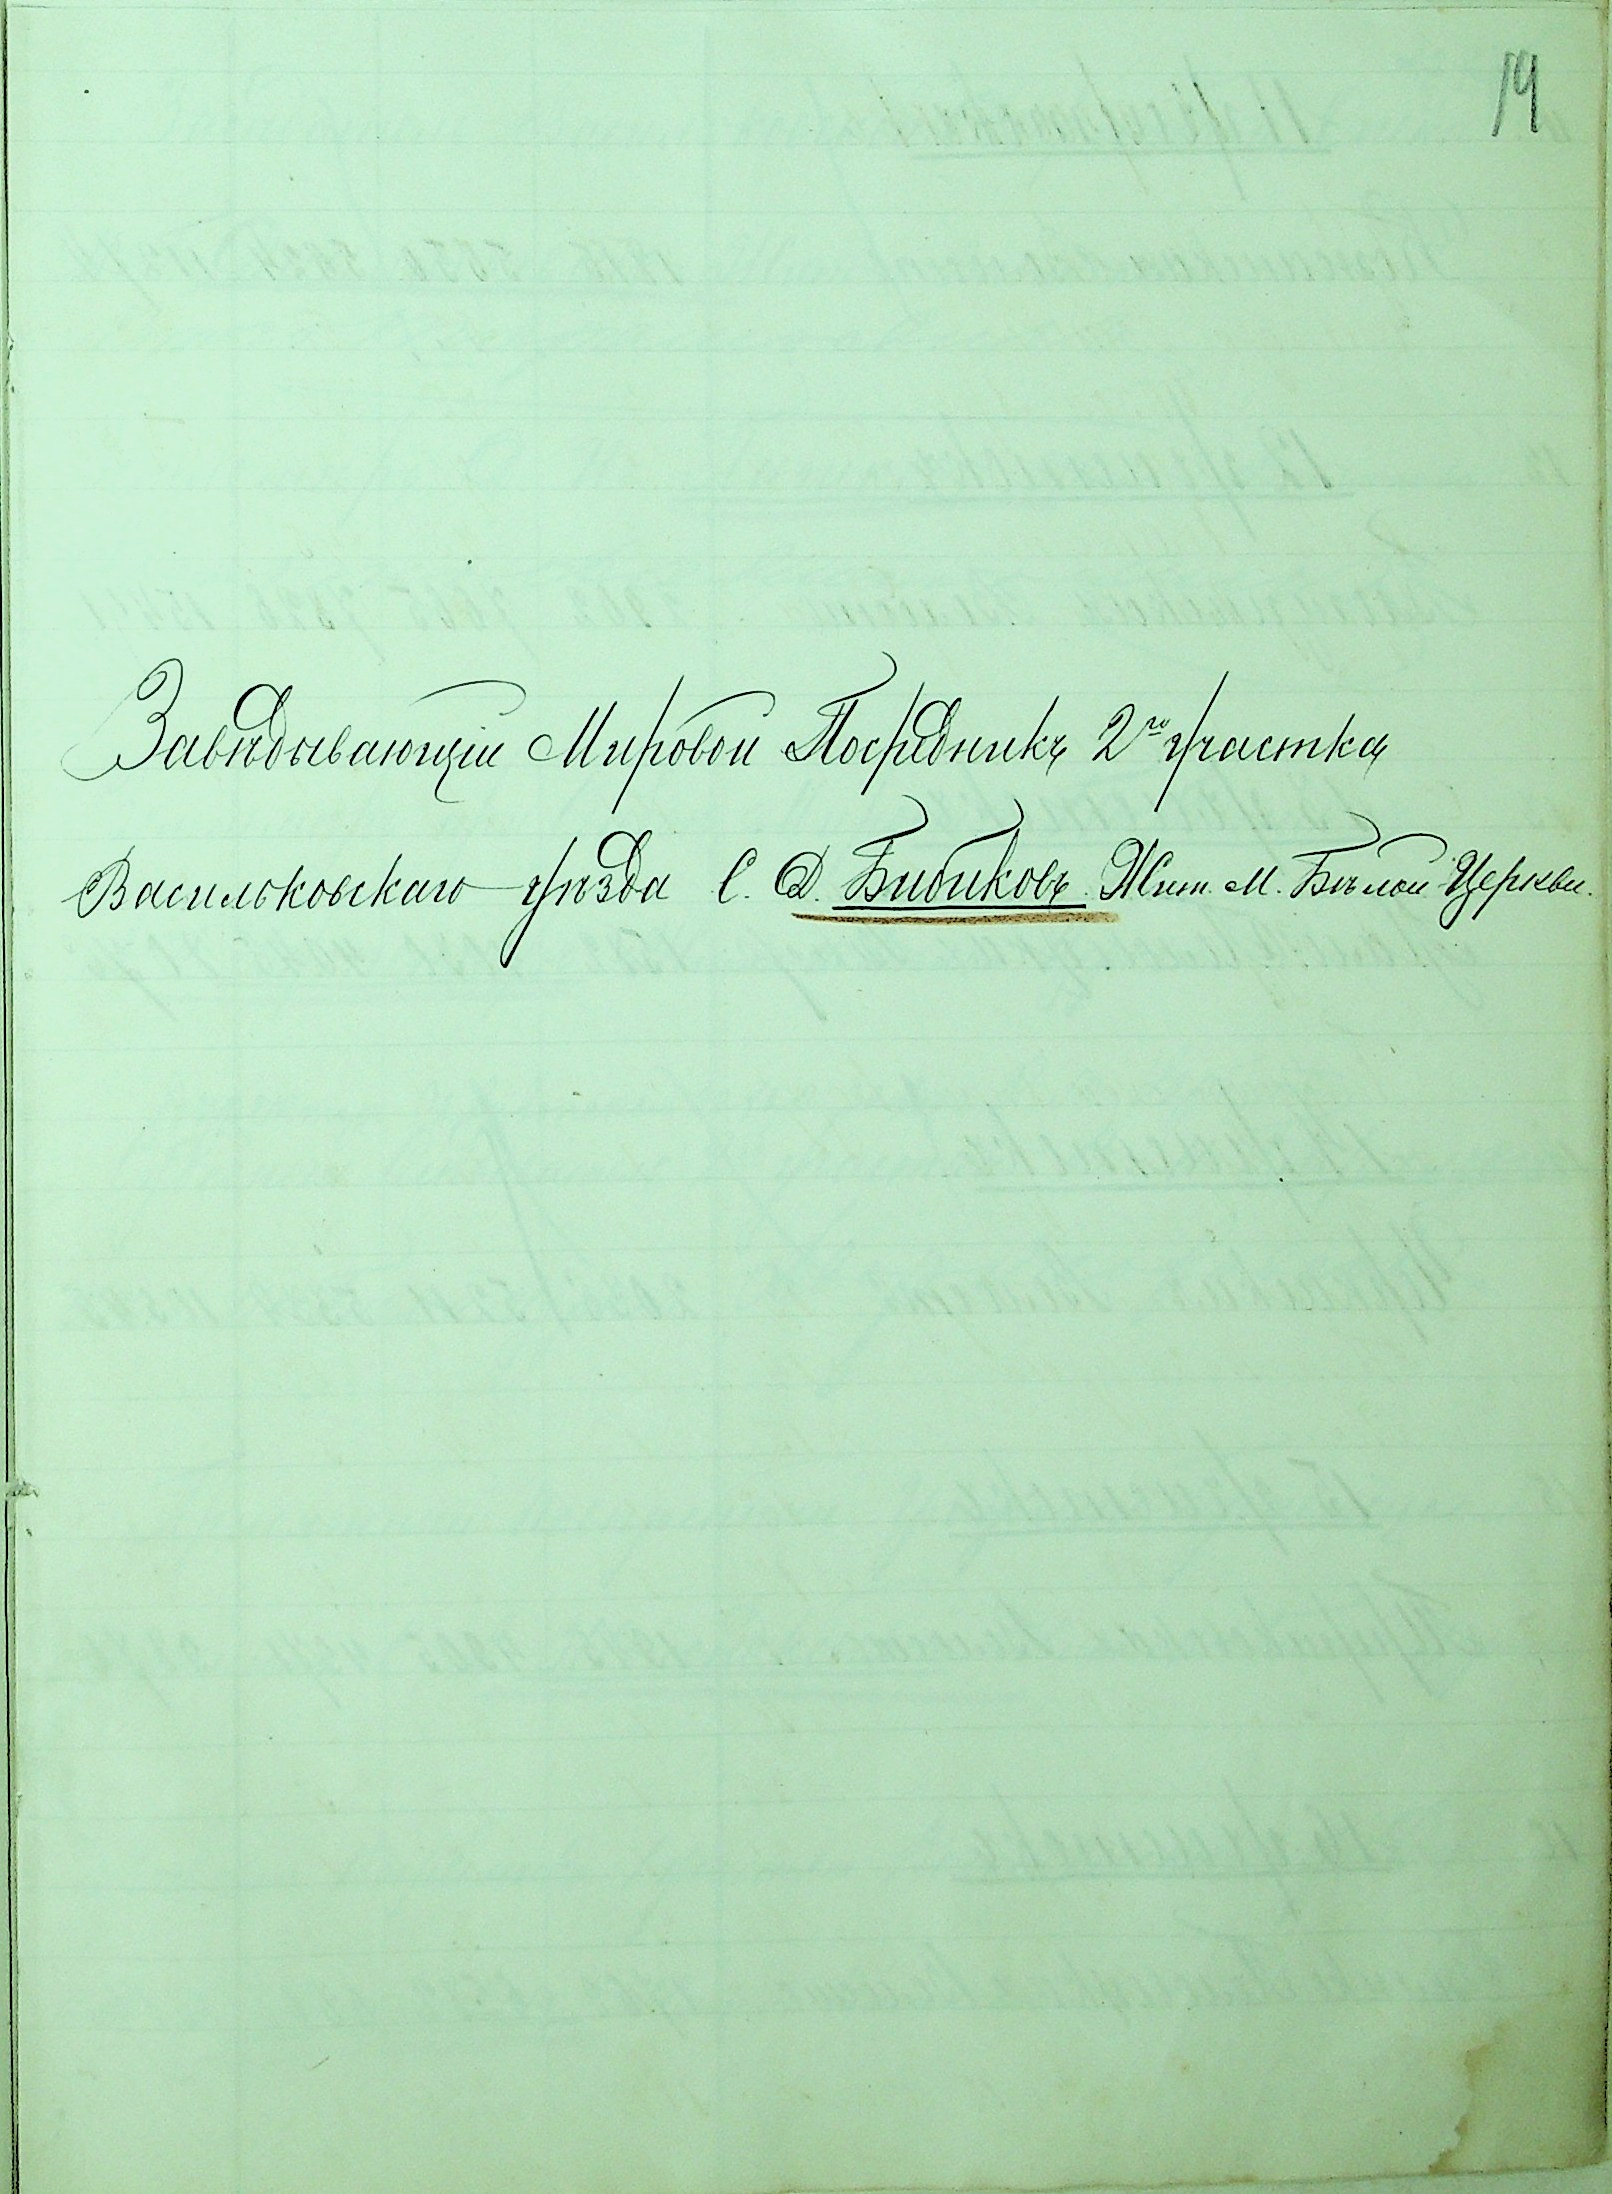 19
Завѣдывающій Мировой Посредникъ 2го участка
Васильковскаго уѣзда С. Д. Бибиковъ. Жит. М. Бѣлой Церкви.